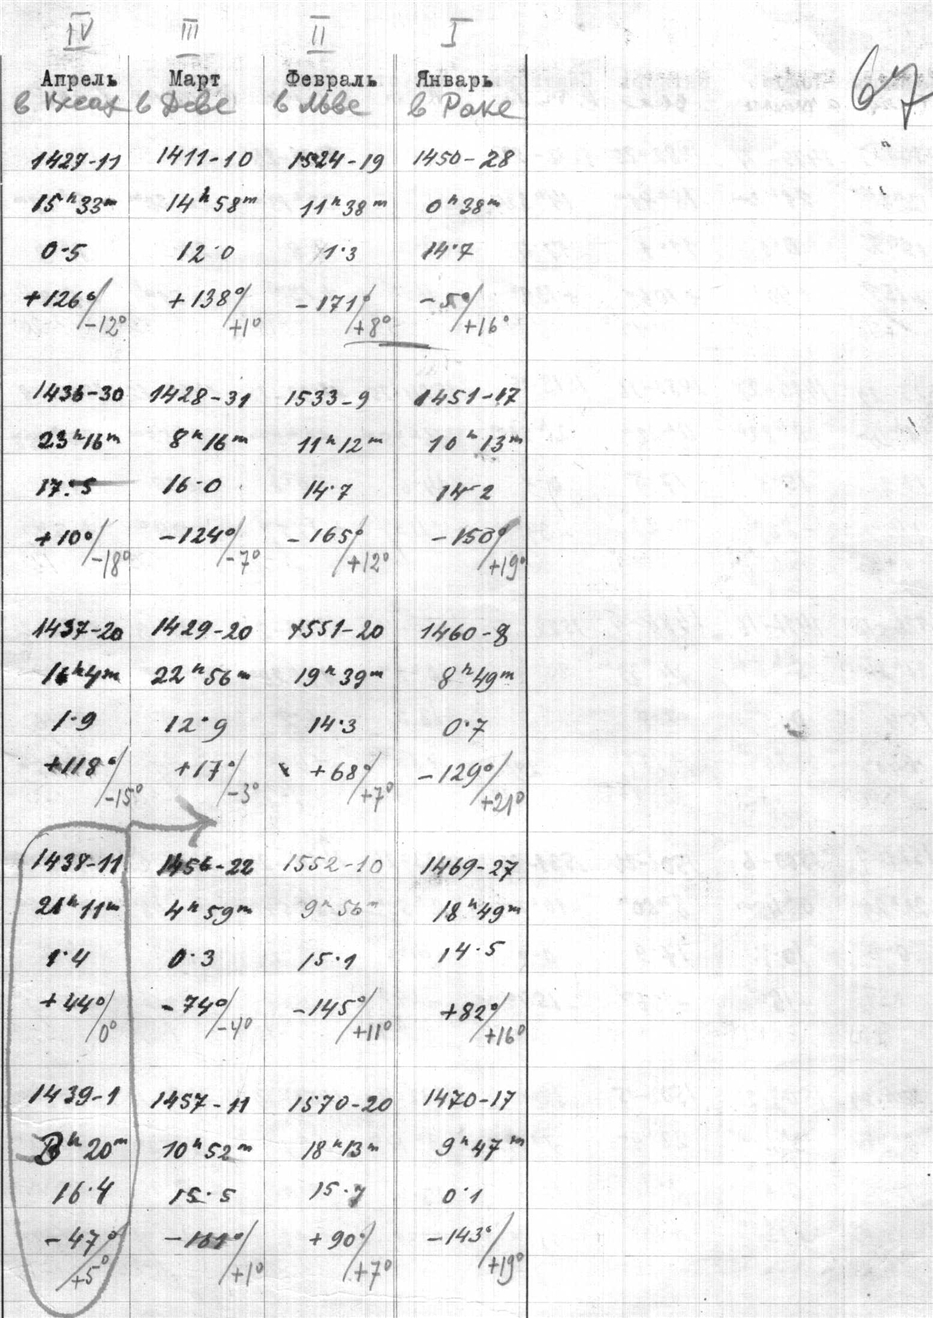 IV III II I
67
Апрель Март Февраль Январь
в Весах в Деве в Льве в Раке
1427-11 1411-10 1524-19 1450-28
15ʰ33ᵐ 14ʰ58ᵐ 11ʰ38ᵐ 0ʰ38ᵐ
0·5 12·0 1·3 14·7
+126°/-12° +138°/+1° -171°/+8° -5°/+16°
1436-30 1428-31 1533-9 1451-17
23ʰ16ᵐ 8ʰ16ᵐ 11ʰ12ᵐ 10ʰ13ᵐ
17·5 16·0 14·7 14·2
+10°/-18° -124°/-7° -165°/+12° -150°/+19°
1437-20 1429-20 1551-20 1460-8
16ʰ4ᵐ 22ʰ56ᵐ 19ʰ39ᵐ 8ʰ49ᵐ
1·9 12·9 14·3 0·7
+118°/-15° +17°/-3° +68°/+7° -129°/+21°
1438-11 1456-22 1552-10 1469-27
21ʰ11ᵐ 4ʰ59ᵐ 9ʰ56ᵐ 18ʰ49ᵐ
1·4 0·3 15·1 14·5
+44°/0° -74°/-4° -145°/+11° +82°/+16°
1439-1 1457-11 1570-20 1470-17
ʰ20ᵐ 10ʰ52ᵐ 18ʰ13ᵐ 9ʰ47ᵐ
16·4 15·5 15·7 0·1
-47°/+5° /+1° +90°/+7° -143°/+19°